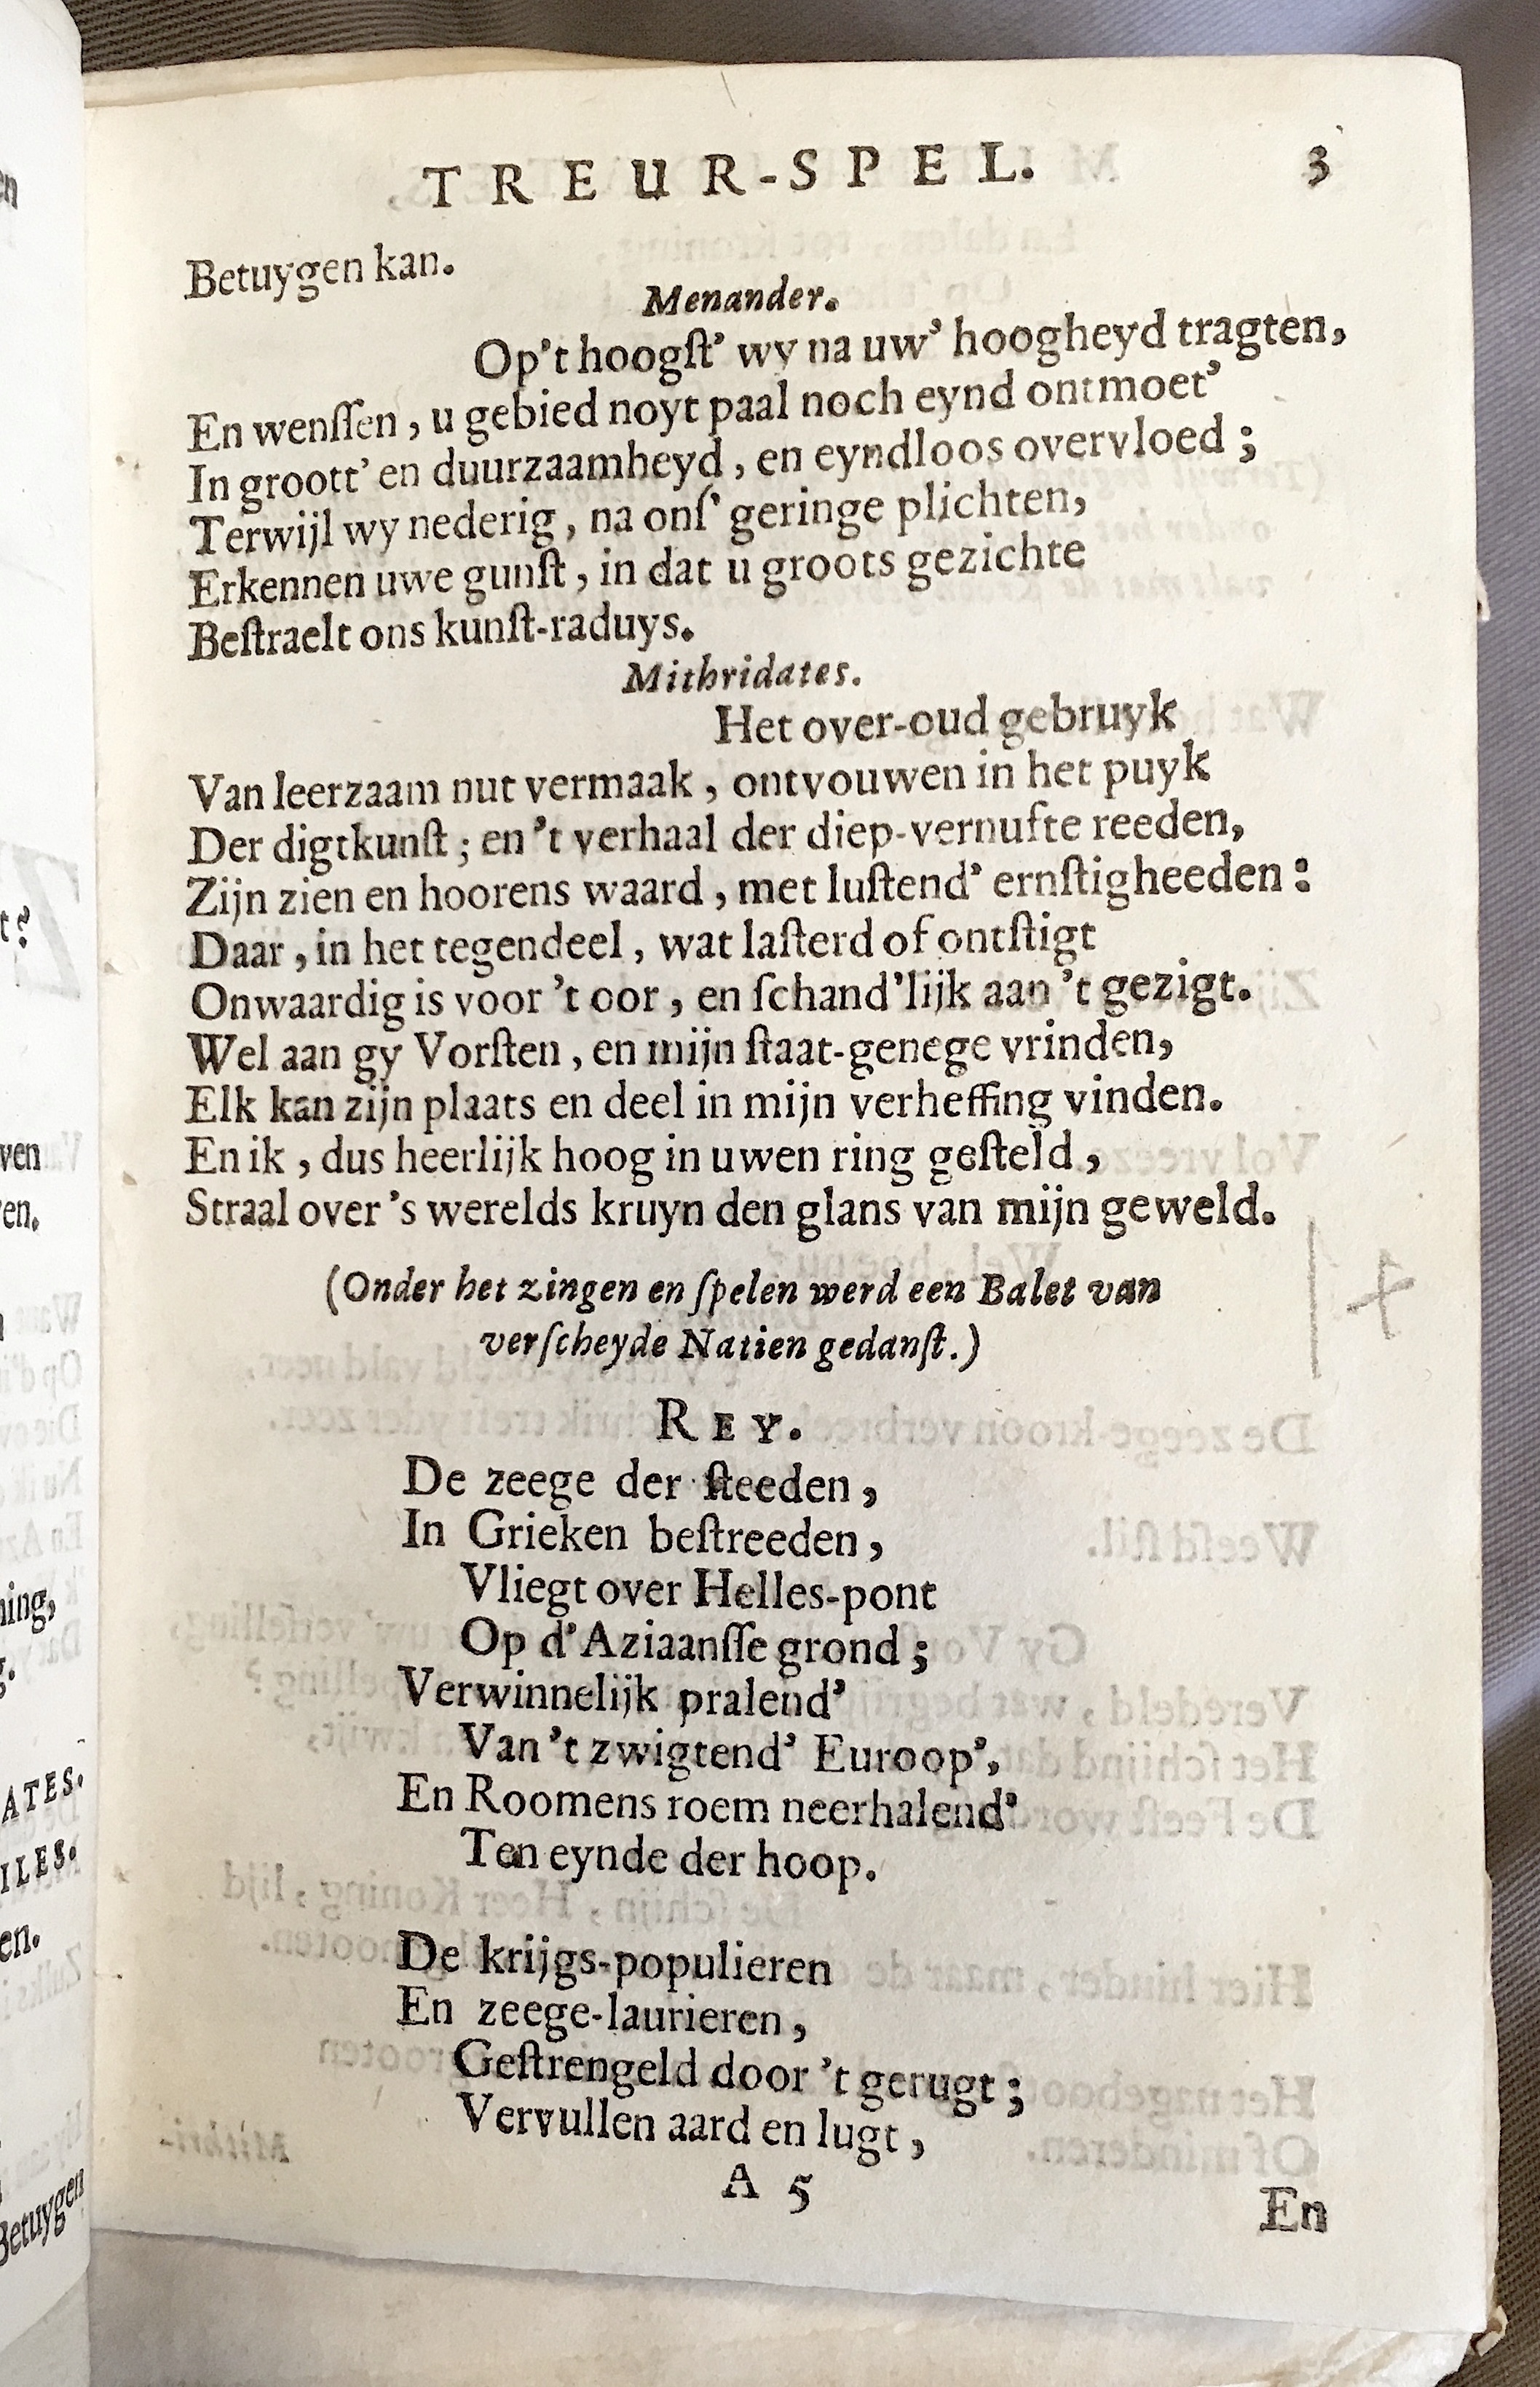 TREUR-SPEL. 3
Betuygen kan.
Menander.
Op't hoogſt' wy na uw' hoogheyd tragten,
En wenſſen, u gebied noyt paal noch eynd ontmoet'
In groott' en duurzaamheyd, en eyndloos overvloed;
Terwijl wy nederig, na onſ' geringe plichten,
Erkennen uwe gunſt, in dat u groots gezichte
Beſtraelt ons kunſt-raduys.
Mithridates.
Het over-oud gebruyk
Van leerzaam nut vermaak, ontvouwen in het puyk
Der digtkunſt; en 't verhaal der diep-vernufte reeden,
Zijn zien en hoorens waard, met luſtend' ernſtigheeden:
Daar, in het tegendeel, wat laſterd of ontſtigt
Onwaardig is voor 't oor, en ſchand'lijk aan 't gezigt.
Wel aan gy Vorſten, en mijn ſtaat-genege vrinden,
Elk kan zijn plaats en deel in mijn verheffing vinden.
En ik, dus heerlijk hoog in uwen ring geſteld,
Straal over 's werelds kruyn den glans van mijn geweld.
(Onder het zingen en ſpelen werd een Balet van
verſcheyde Natien gedanſt.)
REY.
De zeege der ſteeden,
In Grieken beſtreeden,
Vliegt over Helles-pont
Op d'Aziaanſſe grond;
Verwinnelijk pralend'
Van 't zwigtend' Euroop',
En Roomens roem neerhalend'
Ten eynde der hoop.
De krijgs-populieren
En zeege-laurieren,
Geſtrengeld door 't gerugt;
Vervullen aard en lugt,
A 5
En